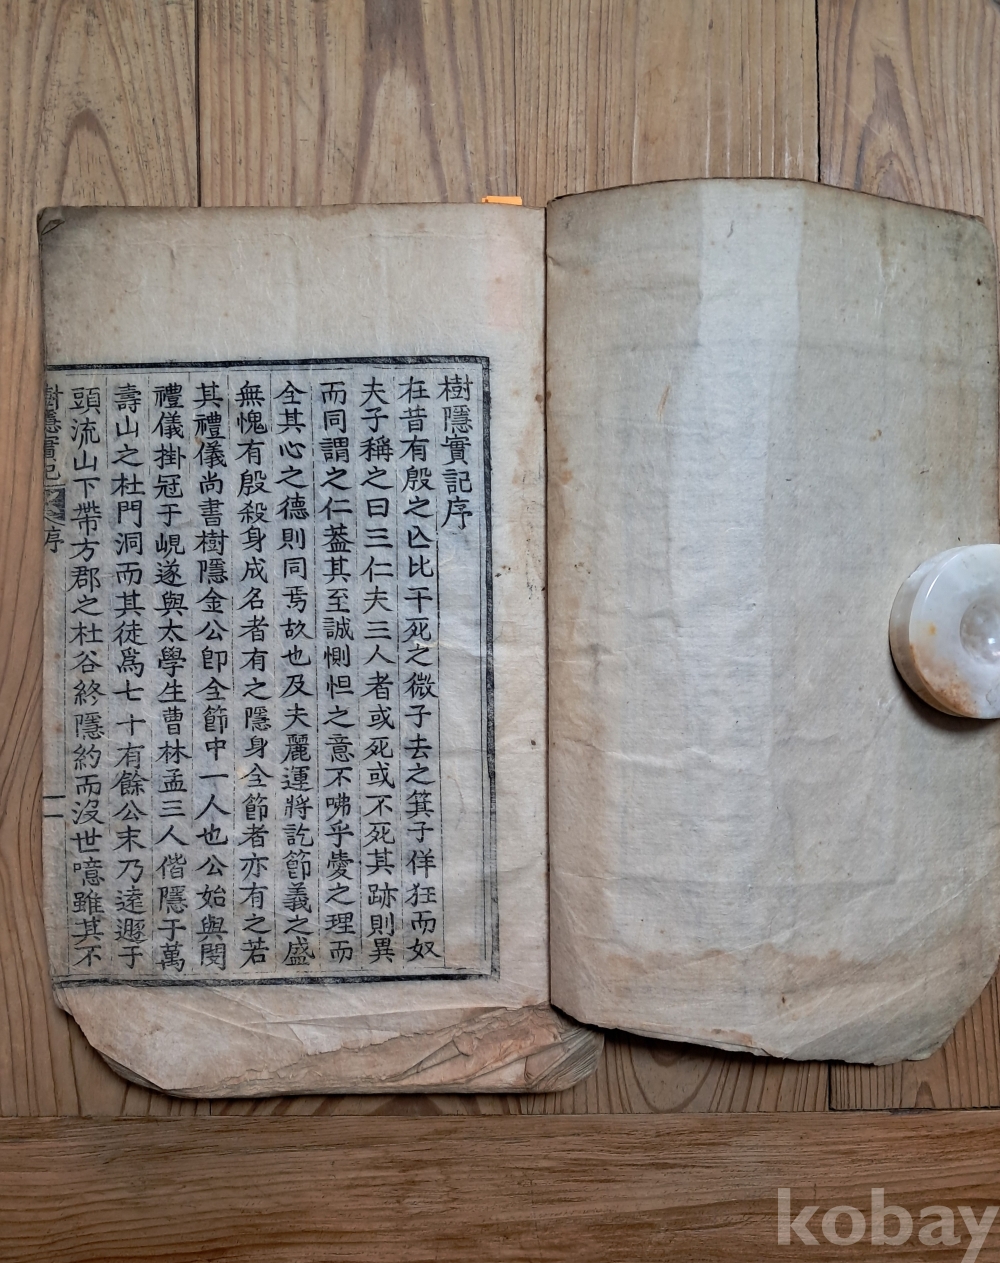 樹隱實記序
在昔有殷之亾比干死之微子去之箕子佯狂而奴
夫子稱之曰三仁夫三人者或死或不死其跡則異
而同謂之仁葢其至誠惻怛之意不咈乎愛之理而
全其心之德則同焉故也及夫麗運將訖節義之盛
無愧有殷殺身成名者有之隱身全節者亦有之若
其禮儀尚書樹隱金公卽全節中一人也公始與閔
禮儀掛冠于峴遂與太學生曹林孟三人偕隱于萬
壽山之杜門洞而其徒爲七十有餘公末乃遠遯于
頭流山下帶方郡之杜谷終隱約而沒世噫雖其不
樹隱實記 序 一
kobay